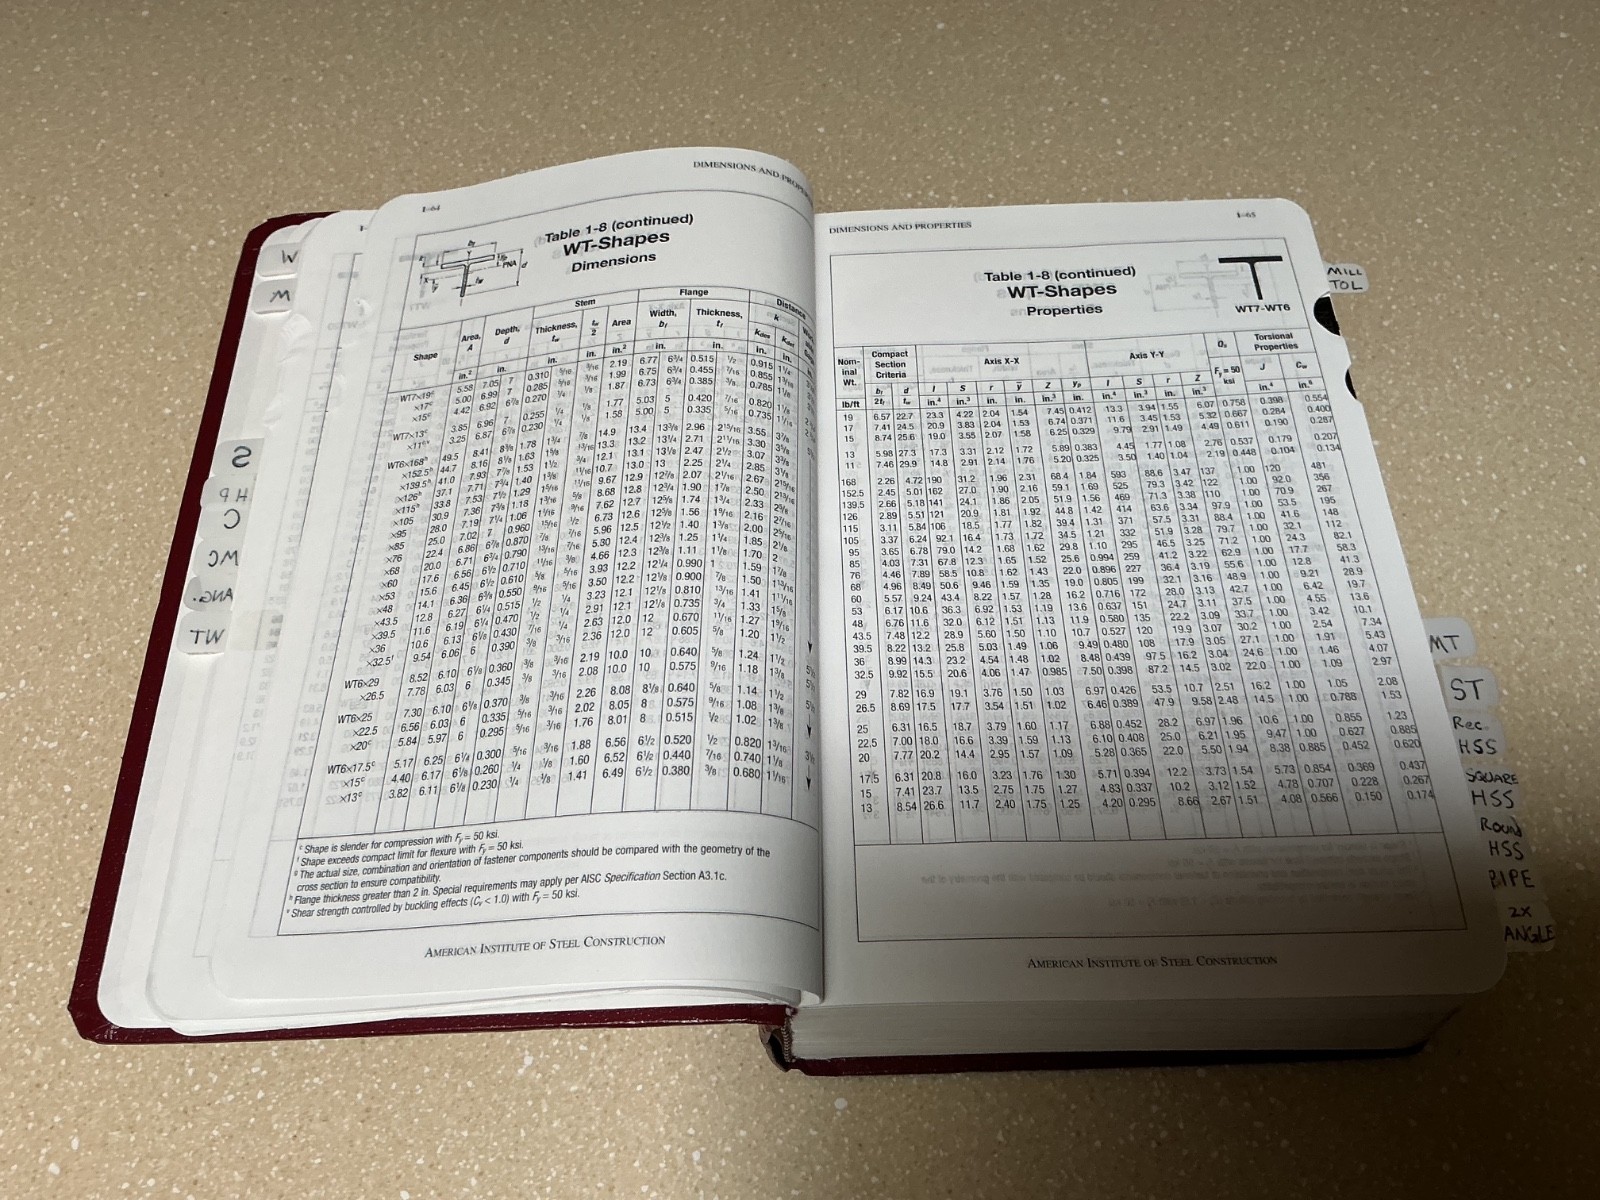 1–64
DIMENSIONS AND PROPE
Table 1-8 (continued)
WT-Shapes
Dimensions
Shape Area, A Depth, d Stem Flange Distance
Thickness, tw tw/2 Area Width, bf Thickness, tf k
kdes kdet
in.² in. in. in. in.² in. in. in. in.
WT7×19ᶜ 5.58 7.05 7 0.310 5/16 3/16 2.19 6.77 6¾ 0.515 ½ 0.915 1¼
×17ᶜ 5.00 6.99 7 0.285 5/16 3/16 1.99 6.75 6¾ 0.455 7/16 0.855 1 3/16
×15ᶜ 4.42 6.92 6⅞ 0.270 ¼ ⅛ 1.87 6.73 6¾ 0.385 ⅜ 0.785 1⅛
WT7×13ᶜ 3.85 6.96 7 0.255 ¼ ⅛ 1.77 5.03 5 0.420 7/16 0.820 1⅛
×11ᶜ 3.25 6.87 6⅞ 0.230 ¼ ⅛ 1.58 5.00 5 0.335 5/16 0.735 1 1/16
WT6×168ʰ 49.5 8.41 8⅜ 1.78 1¾ 14.9 13.4 13⅜ 2.96 2 15/16 3.55 3⅞
×152.5ʰ 44.7 8.16 8⅛ 1.63 1⅝ 13/16 13.3 13.2 13¼ 2.71 2 11/16 3.30
×139.5ʰ 41.0 7.93 7⅞ 1.53 1½ ¾ 12.1 13.1 13⅛ 2.47 2½ 3.07
×126ʰ 37.1 7.71 7¾ 1.40 1⅜ 11/16 10.7 13.0 13 2.25 2¼ 2.85
×115ʰ 33.8 7.53 7½ 1.29 1 5/16 11/16 9.67 12.9 12⅞ 2.07 2 1/16 2.67
×105 30.9 7.36 7⅜ 1.18 1 3/16 ⅝ 8.68 12.8 12¾ 1.90 1⅞ 2.50
×95 28.0 7.19 7¼ 1.06 1 1/16 9/16 7.62 12.7 12⅝ 1.74 1¾ 2.33
×85 25.0 7.02 7 0.960 15/16 ½ 6.73 12.6 12⅝ 1.56 1 9/16 2.16 2 7/16
×76 22.4 6.86 6⅞ 0.870 ⅞ 7/16 5.96 12.5 12½ 1.40 1⅜ 2.00 2 5/16
×68 20.0 6.71 6¾ 0.790 13/16 7/16 5.30 12.4 12⅜ 1.25 1¼ 1.85 2⅛
×60 17.6 6.56 6½ 0.710 11/16 ⅜ 4.66 12.3 12⅜ 1.11 1⅛ 1.70 2
×53 15.6 6.45 6½ 0.610 ⅝ 5/16 3.93 12.2 12¼ 0.990 1 1.59 1⅞
×48 14.1 6.36 6⅜ 0.550 9/16 5/16 3.50 12.2 12⅛ 0.900 ⅞ 1.50 1 13/16
×43.5 12.8 6.27 6¼ 0.515 ½ ¼ 3.23 12.1 12⅛ 0.810 13/16 1.41 1 11/16
×39.5 11.6 6.19 6¼ 0.470 ½ ¼ 2.91 12.1 12⅛ 0.735 ¾ 1.33 1⅝
×36 10.6 6.13 6⅛ 0.430 7/16 ¼ 2.63 12.0 12 0.670 11/16 1.27 1 9/16
×32.5ᶠ 9.54 6.06 6 0.390 ⅜ 3/16 2.36 12.0 12 0.605 ⅝ 1.20 1½
WT6×29 8.52 6.10 6⅛ 0.360 ⅜ 3/16 2.19 10.0 10 0.640 ⅝ 1.24 1½
×26.5 7.78 6.03 6 0.345 ⅜ 3/16 2.08 10.0 10 0.575 9/16 1.18 1⅜
WT6×25 7.30 6.10 6⅛ 0.370 ⅜ 3/16 2.26 8.08 8⅛ 0.640 ⅝ 1.14 1½
×22.5 6.56 6.03 6 0.335 5/16 3/16 2.02 8.05 8 0.575 9/16 1.08 1⅜
×20ᶜ 5.84 5.97 6 0.295 5/16 3/16 1.76 8.01 8 0.515 ½ 1.02 1⅜
WT6×17.5ᶜ 5.17 6.25 6¼ 0.300 5/16 3/16 1.88 6.56 6½ 0.520 ½ 0.820 1 3/16
×15ᶜ 4.40 6.17 6⅛ 0.260 ¼ ⅛ 1.60 6.52 6½ 0.440 7/16 0.740 1⅛
×13ᶜ 3.82 6.11 6⅛ 0.230 ¼ ⅛ 1.41 6.49 6½ 0.380 ⅜ 0.680 1 1/16
ᶜ Shape is slender for compression with Fy = 50 ksi.
ᶠ Shape exceeds compact limit for flexure with Fy = 50 ksi.
ᵍ The actual size, combination and orientation of fastener components should be compared with the geometry of the
cross section to ensure compatibility.
ʰ Flange thickness greater than 2 in. Special requirements may apply per AISC Specification Section A3.1c.
ᵛ Shear strength controlled by buckling effects (Cv < 1.0) with Fy = 50 ksi.
AMERICAN INSTITUTE OF STEEL CONSTRUCTION
DIMENSIONS AND PROPERTIES
1–65
Table 1-8 (continued)
WT-Shapes
Properties
WT7-WT6
Nominal Wt. Compact Section Criteria Axis X-X Axis Y-Y Qs Torsional Properties
bf/2tf d/tw I S r ȳ Z yp I S r Z Fy = 50 ksi J Cw
lb/ft in.⁴ in.³ in. in. in.³ in. in.⁴ in.³ in. in.³ in.⁴ in.⁶
19 6.57 22.7 23.3 4.22 2.04 1.54 7.45 0.412 13.3 3.94 1.55 6.07 0.758 0.398 0.554
17 7.41 24.5 20.9 3.83 2.04 1.53 6.74 0.371 11.6 3.45 1.53 5.32 0.667 0.284 0.400
15 8.74 25.6 19.0 3.55 2.07 1.58 6.25 0.329 9.79 2.91 1.49 4.49 0.611 0.190 0.287
13 5.98 27.3 17.3 3.31 2.12 1.72 5.89 0.383 4.45 1.77 1.08 2.76 0.537 0.179 0.207
11 7.46 29.9 14.8 2.91 2.14 1.76 5.20 0.325 3.50 1.40 1.04 2.19 0.448 0.104 0.134
168 2.26 4.72 190 31.2 1.96 2.31 68.4 1.84 593 88.6 3.47 137 1.00 120 481
152.5 2.45 5.01 162 27.0 1.90 2.16 59.1 1.69 525 79.3 3.42 122 1.00 92.0 356
139.5 2.66 5.18 141 24.1 1.86 2.05 51.9 1.56 469 71.3 3.38 110 1.00 70.9 267
126 2.89 5.51 121 20.9 1.81 1.92 44.8 1.42 414 63.6 3.34 97.9 1.00 53.5 195
115 3.11 5.84 106 18.5 1.77 1.82 39.4 1.31 371 57.5 3.31 88.4 1.00 41.6 148
105 3.37 6.24 92.1 16.4 1.73 1.72 34.5 1.21 332 51.9 3.28 79.7 1.00 32.1 112
95 3.65 6.78 79.0 14.2 1.68 1.62 29.8 1.10 295 46.5 3.25 71.2 1.00 24.3 82.1
85 4.03 7.31 67.8 12.3 1.65 1.52 25.6 0.994 259 41.2 3.22 62.9 1.00 17.7 58.3
76 4.46 7.89 58.5 10.8 1.62 1.43 22.0 0.896 227 36.4 3.19 55.6 1.00 12.8 41.3
68 4.96 8.49 50.6 9.46 1.59 1.35 19.0 0.805 199 32.1 3.16 48.9 1.00 9.21 28.9
60 5.57 9.24 43.4 8.22 1.57 1.28 16.2 0.716 172 28.0 3.13 42.7 1.00 6.42 19.7
53 6.17 10.6 36.3 6.92 1.53 1.19 13.6 0.637 151 24.7 3.11 37.5 1.00 4.55 13.6
48 6.76 11.6 32.0 6.12 1.51 1.13 11.9 0.580 135 22.2 3.09 33.7 1.00 3.42 10.1
43.5 7.48 12.2 28.9 5.60 1.50 1.10 10.7 0.527 120 19.9 3.07 30.2 1.00 2.54 7.34
39.5 8.22 13.2 25.8 5.03 1.49 1.06 9.49 0.480 108 17.9 3.05 27.1 1.00 1.91 5.43
36 8.99 14.3 23.2 4.54 1.48 1.02 8.48 0.439 97.5 16.2 3.04 24.6 1.00 1.46 4.07
32.5 9.92 15.5 20.6 4.06 1.47 0.985 7.50 0.398 87.2 14.5 3.02 22.0 1.00 1.09 2.97
29 7.82 16.9 19.1 3.76 1.50 1.03 6.97 0.426 53.5 10.7 2.51 16.2 1.00 1.05 2.08
26.5 8.69 17.5 17.7 3.54 1.51 1.02 6.46 0.389 47.9 9.58 2.48 14.5 1.00 0.788 1.53
25 6.31 16.5 18.7 3.79 1.60 1.17 6.88 0.452 28.2 6.97 1.96 10.6 1.00 0.855 1.23
22.5 7.00 18.0 16.6 3.39 1.59 1.13 6.10 0.408 25.0 6.21 1.95 9.47 1.00 0.627 0.885
20 7.77 20.2 14.4 2.95 1.57 1.09 5.28 0.365 22.0 5.50 1.94 8.38 0.885 0.452 0.620
17.5 6.31 20.8 16.0 3.23 1.76 1.30 5.71 0.394 12.2 3.73 1.54 5.73 0.854 0.369 0.437
15 7.41 23.7 13.5 2.75 1.75 1.27 4.83 0.337 10.2 3.12 1.52 4.78 0.707 0.228 0.267
13 8.54 26.6 11.7 2.40 1.75 1.25 4.20 0.295 8.66 2.67 1.51 4.08 0.566 0.150 0.174
AMERICAN INSTITUTE OF STEEL CONSTRUCTION
W
M
S
HP
C
MC
ANG.
WT
MILL
TOL
MT
ST
Rec.
HSS
SQUARE
HSS
ROUND
HSS
PIPE
2X
ANGLE